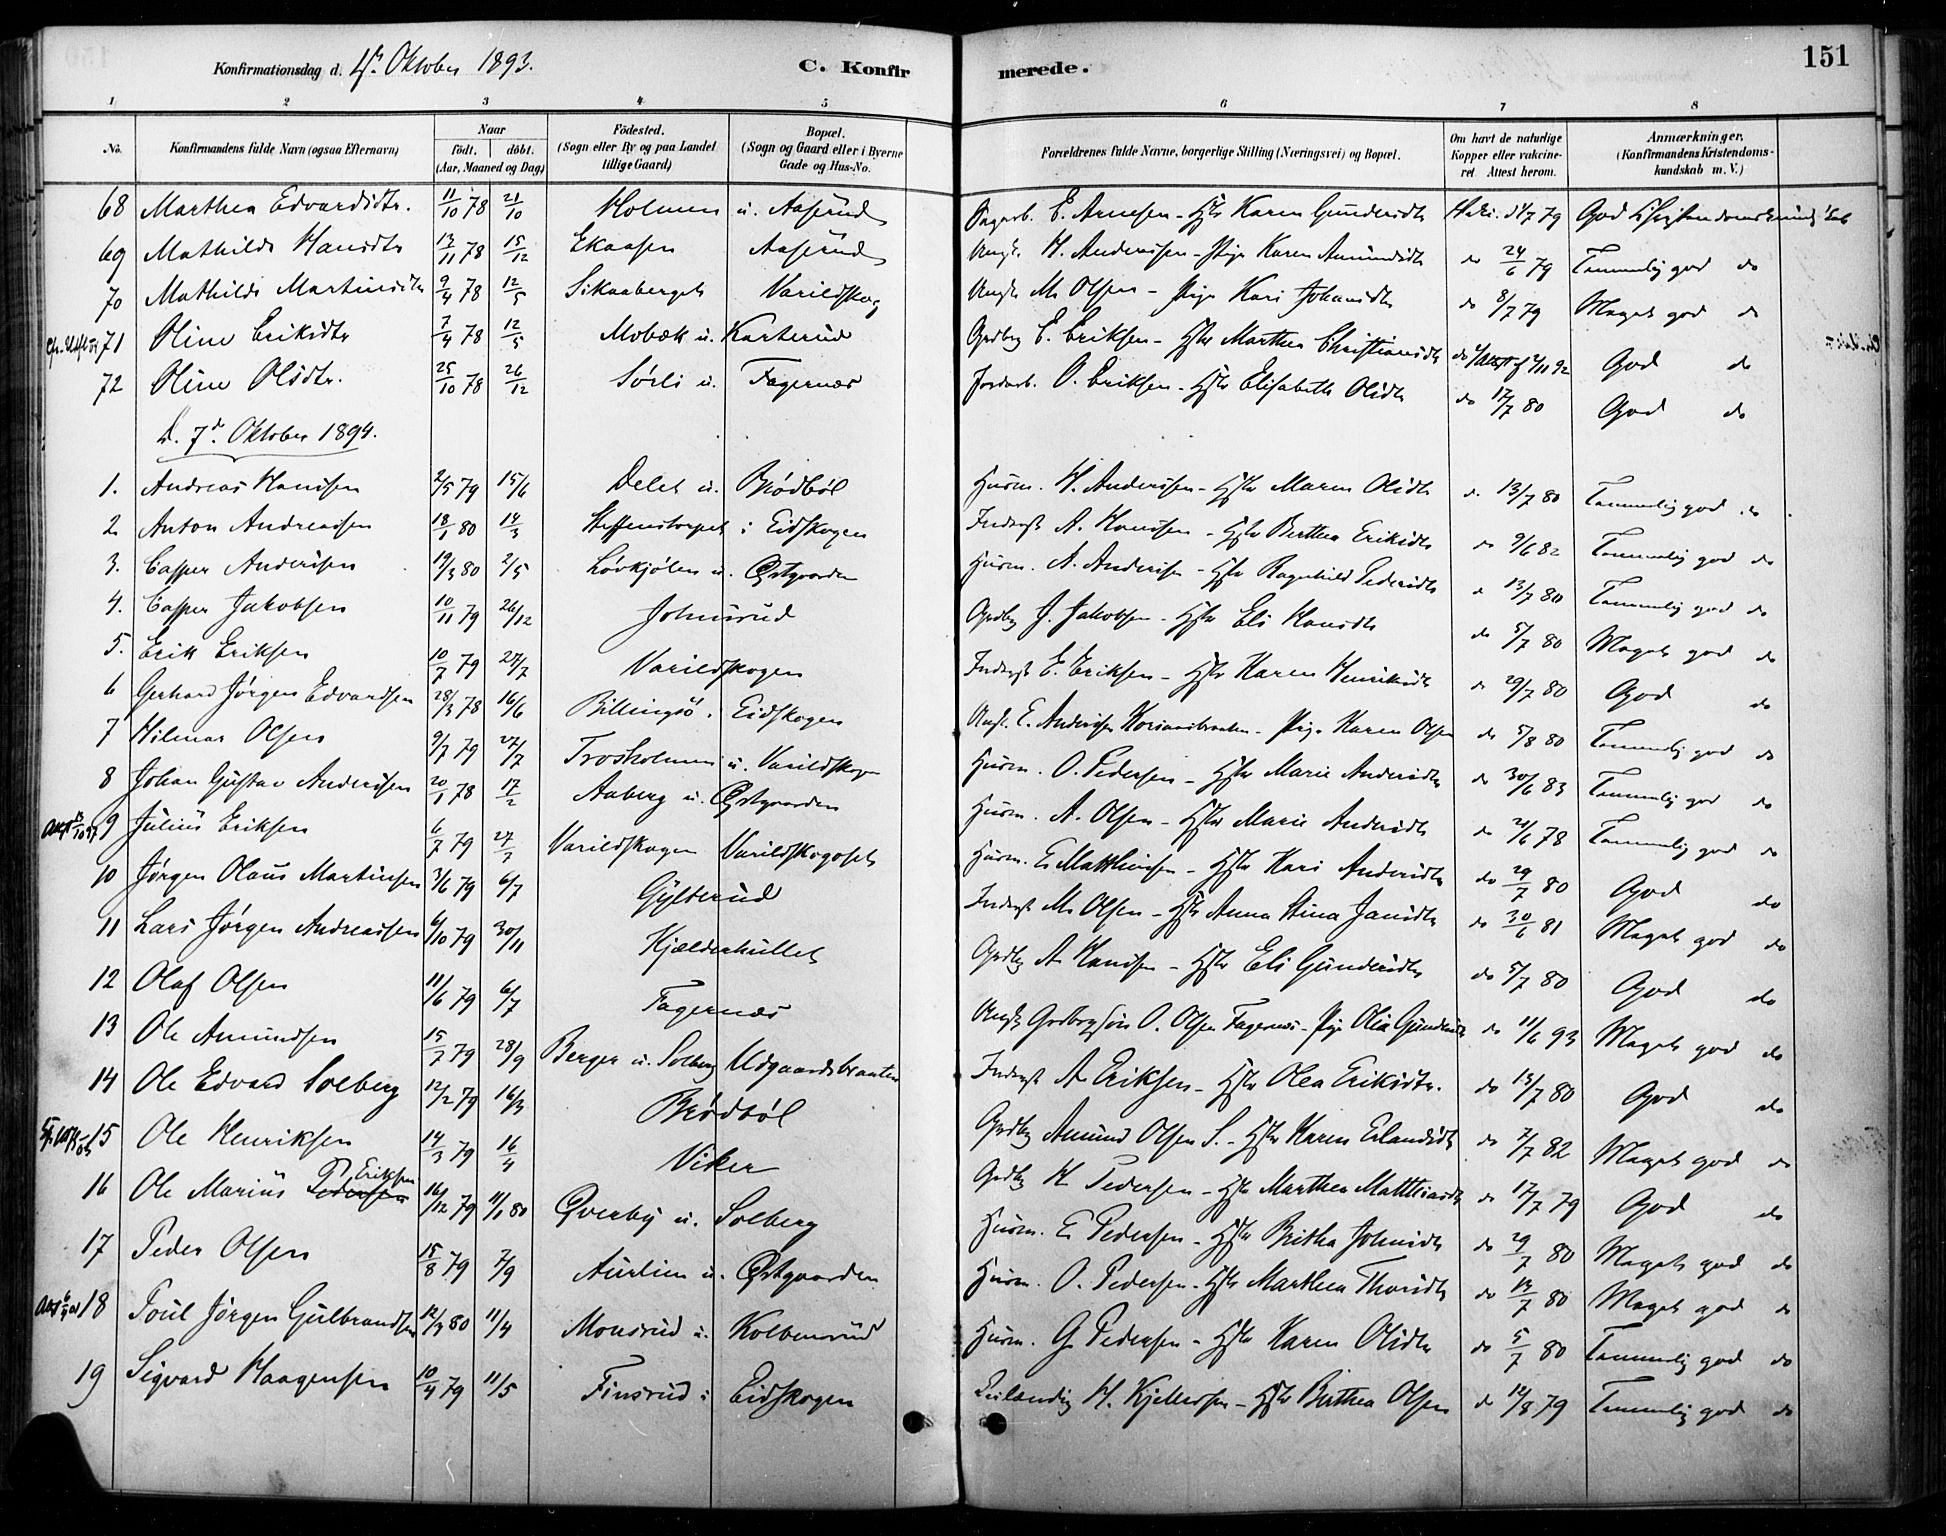 Konfirmationsdag d. Oktober 1893. C. Konfirmerede. 151
1 2 3 4 5 6 7 8
No. Konfirmandens fulde Navn (ogsaa Efternavn) Naar födt. döbt. (Aar, Maaned og Dag) Födested. (Sogn eller By og paa Landet tillige Gaard) Bopæl. (Sogn og Gaard eller i Byerne Gade og Hus-No. Forældrenes fulde Navne, borgerlige Stilling (Næringsvei) og Bopæl. Om havt de naturlige Kopper eller vakcineret Attest herom. Anmærkninger. (Konfirmandens Kristendomskundskab m. V.)
68 Marthea Edvardsdtr. 11/10 78 21/10 Holmen u. Aaserud E. Arnesen - Hstr Karen Gundersdtr 79 God
69 Mathilde Hansdtr 13/11 78 15/12 Ekaasen Aaserud Ungk. H. Andersen - Pige Karen Amundsdtr do 24/6 79 Temmelig god do
70 Mathilde Martinsdtr 9/4 78 12/5 Sikaaberget Varildskog Ungk M. Olsen - Pige Kari Johansdtr do 8/7 79 Meget god do
71 Oline Eriksdtr 7/4 78 12/5 Mobæk u. Karterud Grdbrg E. Eriksen - Hstr Marthea Christiansdtr do 92 God do
72 Oline Olsdtr. 25/10 78 26/12 Sörli u. Fagernæs Jordarb. O. Eriksen - Hstr Elisabeth Olsdtr do 17/7 80 God do
D. 7d Oktober 1894.
1. Andreas Hansen 2/5 79 15/6 Delet u. Brödböl Husm. H. Andersen - Hstr Maren Olsdtr do 13/7 80 Temmelig god do
2. Anton Andreassen 18/1 80 14/3 Steffenstorpet i Eidskogen Inderst A. Hansen - Hstr Berthea Eriksdtr do 9/6 82 Temmelig god do
3. Casper Andersen 19/3 80 2/5 Lövkjölen u. Östgaarden Husm. A. Andersen - Hstr Ragnhild Pedersdtr do 13/7 80 Temmelig god do
4. Casper Jakobsen 10/11 79 26/12 Johnsrud Grdbrg J. Jakobsen - Hstr Eli Hansdtr do 5/7 80 Meget god do
5. Erik Eriksen 10/7 79 27/7 Varildskogen Inderst E. Eriksen - Hstr Karen Henriksdtr do 29/7 80 God do
6 Gerhard Jörgen Edvardsen 28/3 78 16/6 Billingsö i Eidskogen Ungk. E. Andersen - Pige Karen Olsen do 5/8 80 Temmelig god do
7 Hilmar Olsen 9/7 79 27/7 Trosholmen u. Varildskogen Husm. O. Pedersen - Hstr Marie Andersdtr do 30/6 83 Temmelig god do
8 Johan Gustav Andersen 20/1 78 17/2 Aaberg u. Östgaarden Husm. A. Olsen - Hstr Marie Andersdtr do 21/6 78 Temmelig god do
9 Julius Eriksen 6/7 79 27/7 Varildskogen Varildskogoset Husm. E. Matthiesen - Hstr Kari Andersdtr do 29/7 80 God do
10 Jörgen Olaus Martinsen 3/6 79 6/7 Gylterud Inderst M. Olsen - Hstr Anna Stina Jansdtr do 30/6 81 Meget god do
11 Lars Jörgen Andreassen 6/10 79 30/11 Kjælderhullet Grdbrg A. Hansen - Hstr Eli Gundersdtr do 5/7 80 God do
12 Olaf Olsen 11/6 79 6/7 Fagernæs Ungk Grdbrgsön O. Olsen Fagernæs - Pige Olea Gundersdtr do 11/6 93 Meget god do
13 Ole Amundsen 15/7 79 28/9 Berger u. Solberg Udgaardsbraaten Inderst A. Eriksen - Hstr Olea Eriksdtr. do 13/7 80 God do
14 Ole Edvard Solberg 12/2 79 16/3 Brödböl Grdbrg Amund Olsen S. - Hstr Karen Erlandsdtr do 7/7 82 Meget god do
15 Ole Henriksen 14/3 79 16/4 Viker Grdbrg H. Pedersen - Hstr Marthea Matthiasdtr do 17/7 79 God do
16 Ole Marius Pedersen Eriksen 16/12 79 11/1 80 Överby u. Solberg Husm. E. Pedersen - Hstr Britha Johnsdtr do 29/7 80 Meget god do
17 Peder Olsen 15/8 79 7/9 Aurlien u. Östgaarden Husm. O. Pedersen - Hstr Marthea Thorsdtr do 13/7 80 Meget god do
18 Poul Jörgen Gulbrandsen 12/3 80 11/4 Monsrud u. Kolbensrud Husm. G. Pedersen - Hstr Karen Olsdtr do 5/7 80 Temmelig god do
19 Sigvard Haagensen 10/4 79 11/5 Finsrud i Eidskogen H. Kjeldsen - Hstr Berthea Olsen do 12/8 79 Temmelig god do